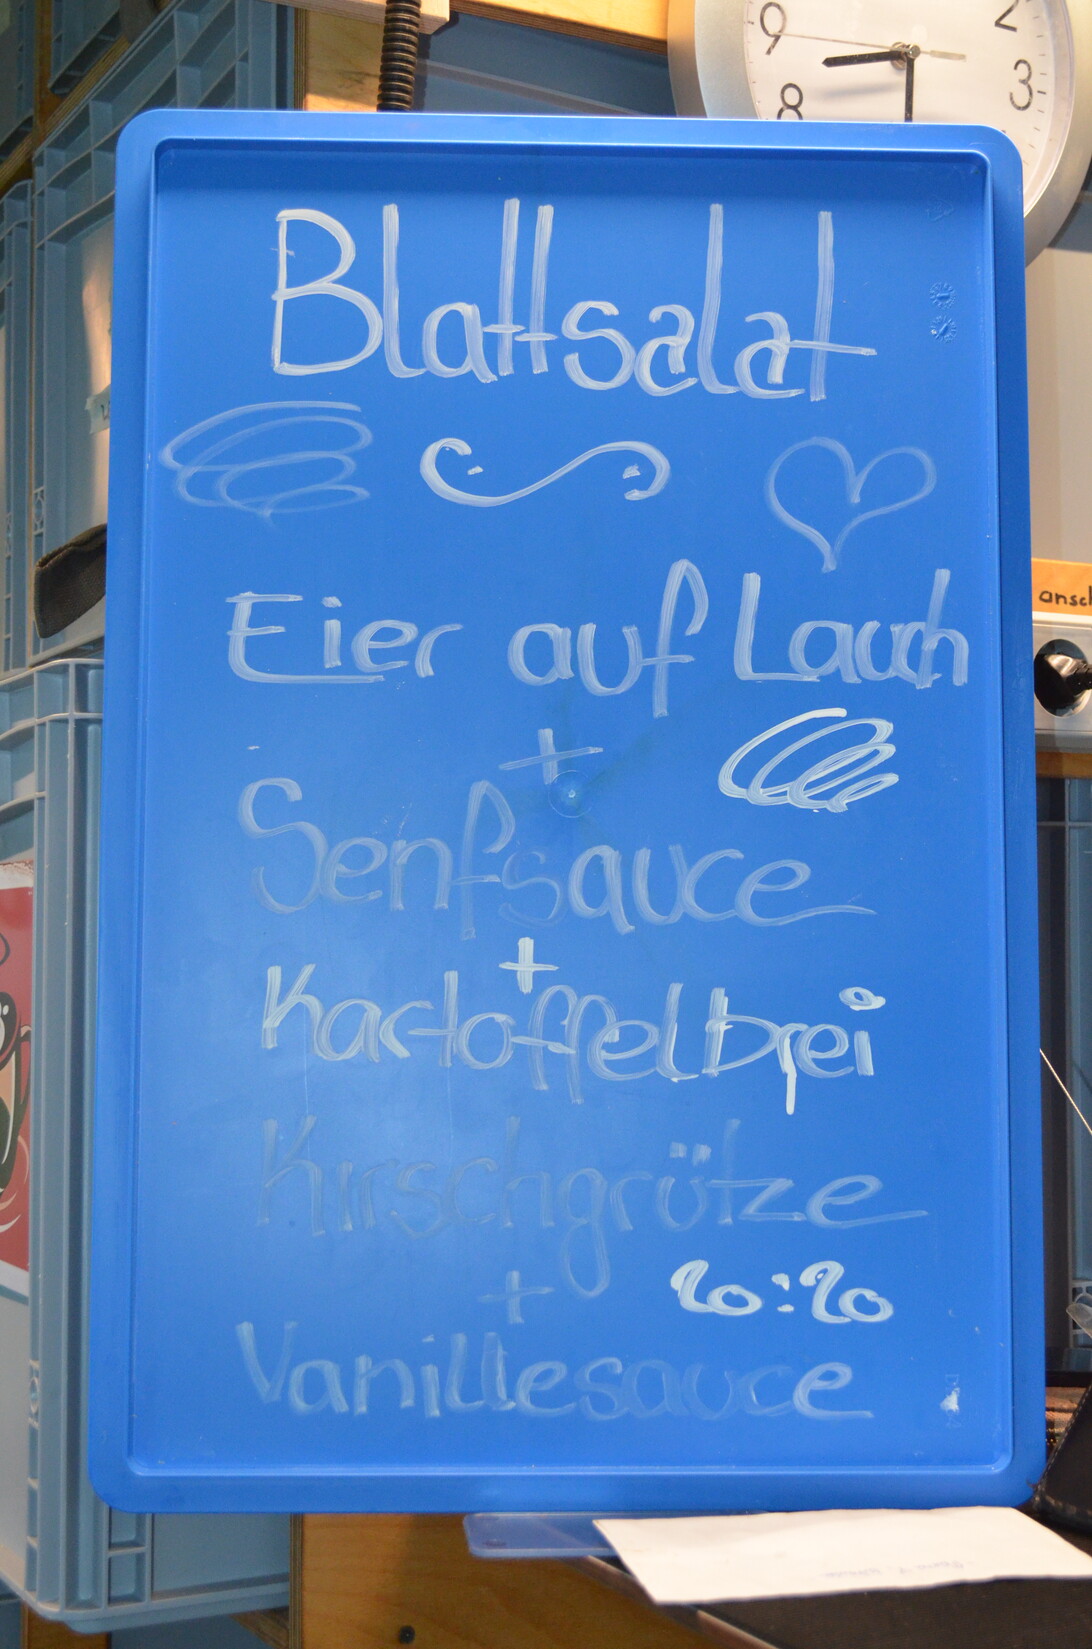 9
2
8
3
Blattsalat
Eier auf Lauch
+
Senfsauce
+
Kartoffelbrei
Kirschgrütze
+
20:20
Vanillesauce
ansch